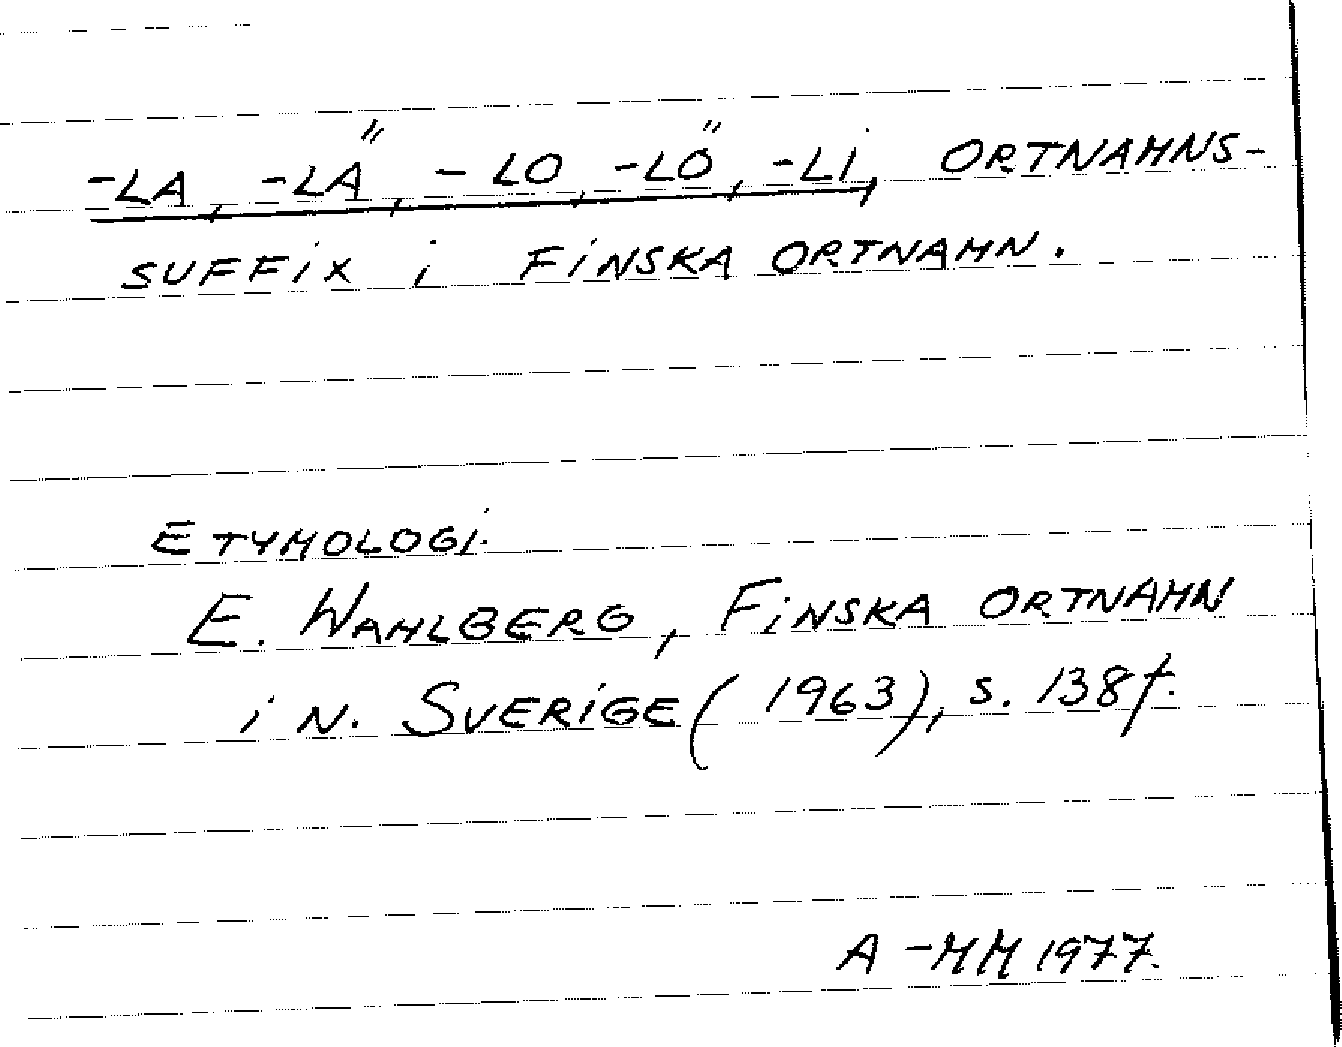 -LA, -LÄ, -LO, -LÖ, -LI, ORTNAMNS-
SUFFIX I FINSKA ORTNAMN.
ETYMOLOGI.
E. WAHLBERG, FINSKA ORTNAMN
I N. SVERIGE (1963), S. 138f.
A-MM 1977.